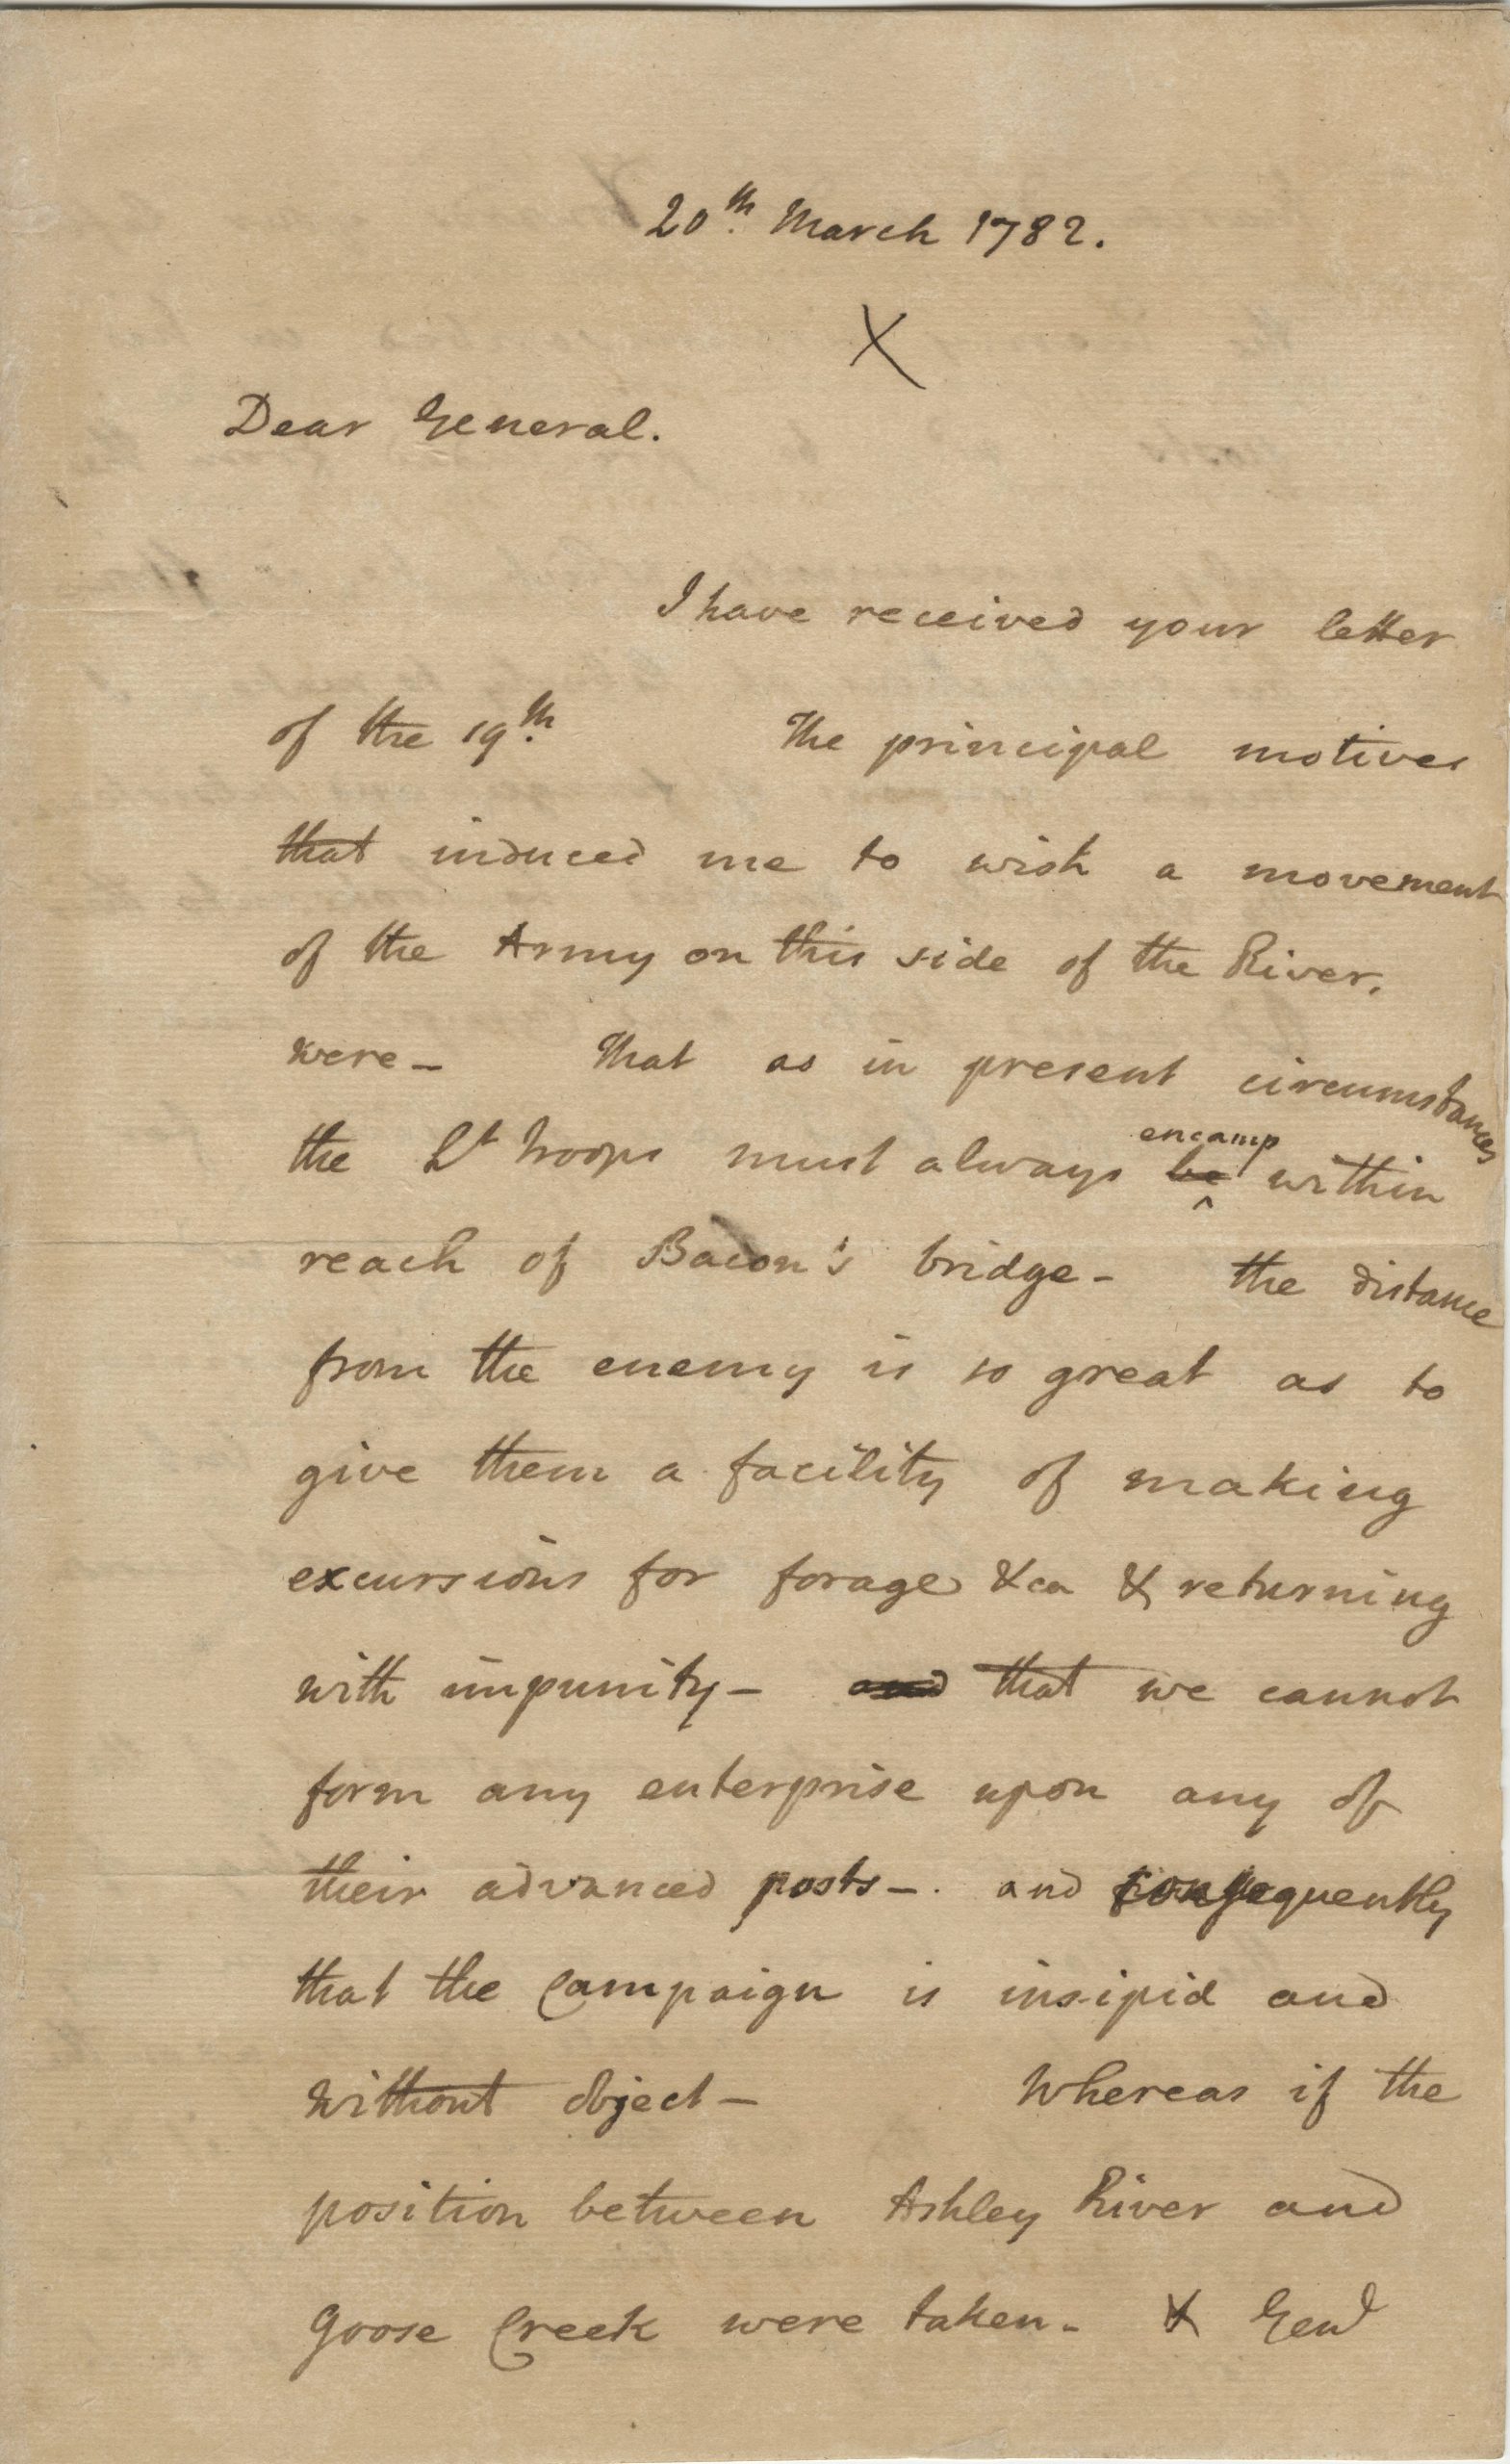 20th. March 1782.
X
Dear General.
I have received your letter
of the 19th. The principal motives
that induced me to wish a movement
of the Army on this side of the River,
were — That as in present circumstances
the Lt troops must always be encamp within
reach of Bacon's bridge - the distance
from the enemy is so great as to
give them a facility of making
excursions for forage &ca & returning
with impunity — and that we cannot
form any enterprise upon any of
their advanced posts —. and consequently
that the Campaign is insipid and
without object — Whereas if the
position between Ashley River and
Goose Creek were taken - & Genl